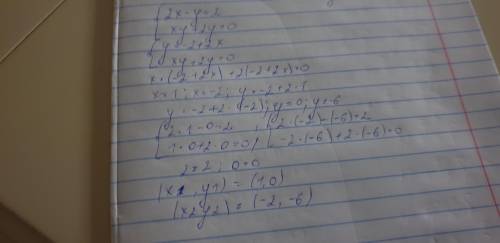 {2x-y=2
xy+2y=0
{y=-2+2x
xy+2y=0
x·(-2+2x)+2(-2+2x)=0
x=1; x=-2; y=-2+2·1
y=-2+2·(-2); y=0; y=-6
{2·1-0=2, {2·(-2)-(-6)=2
1·0+2·0=0, -2·(-6)+2·(-6)=0
2=2; 0=0
(x1, y1)=(1,0)
(x2,y2)=(-2,-6)